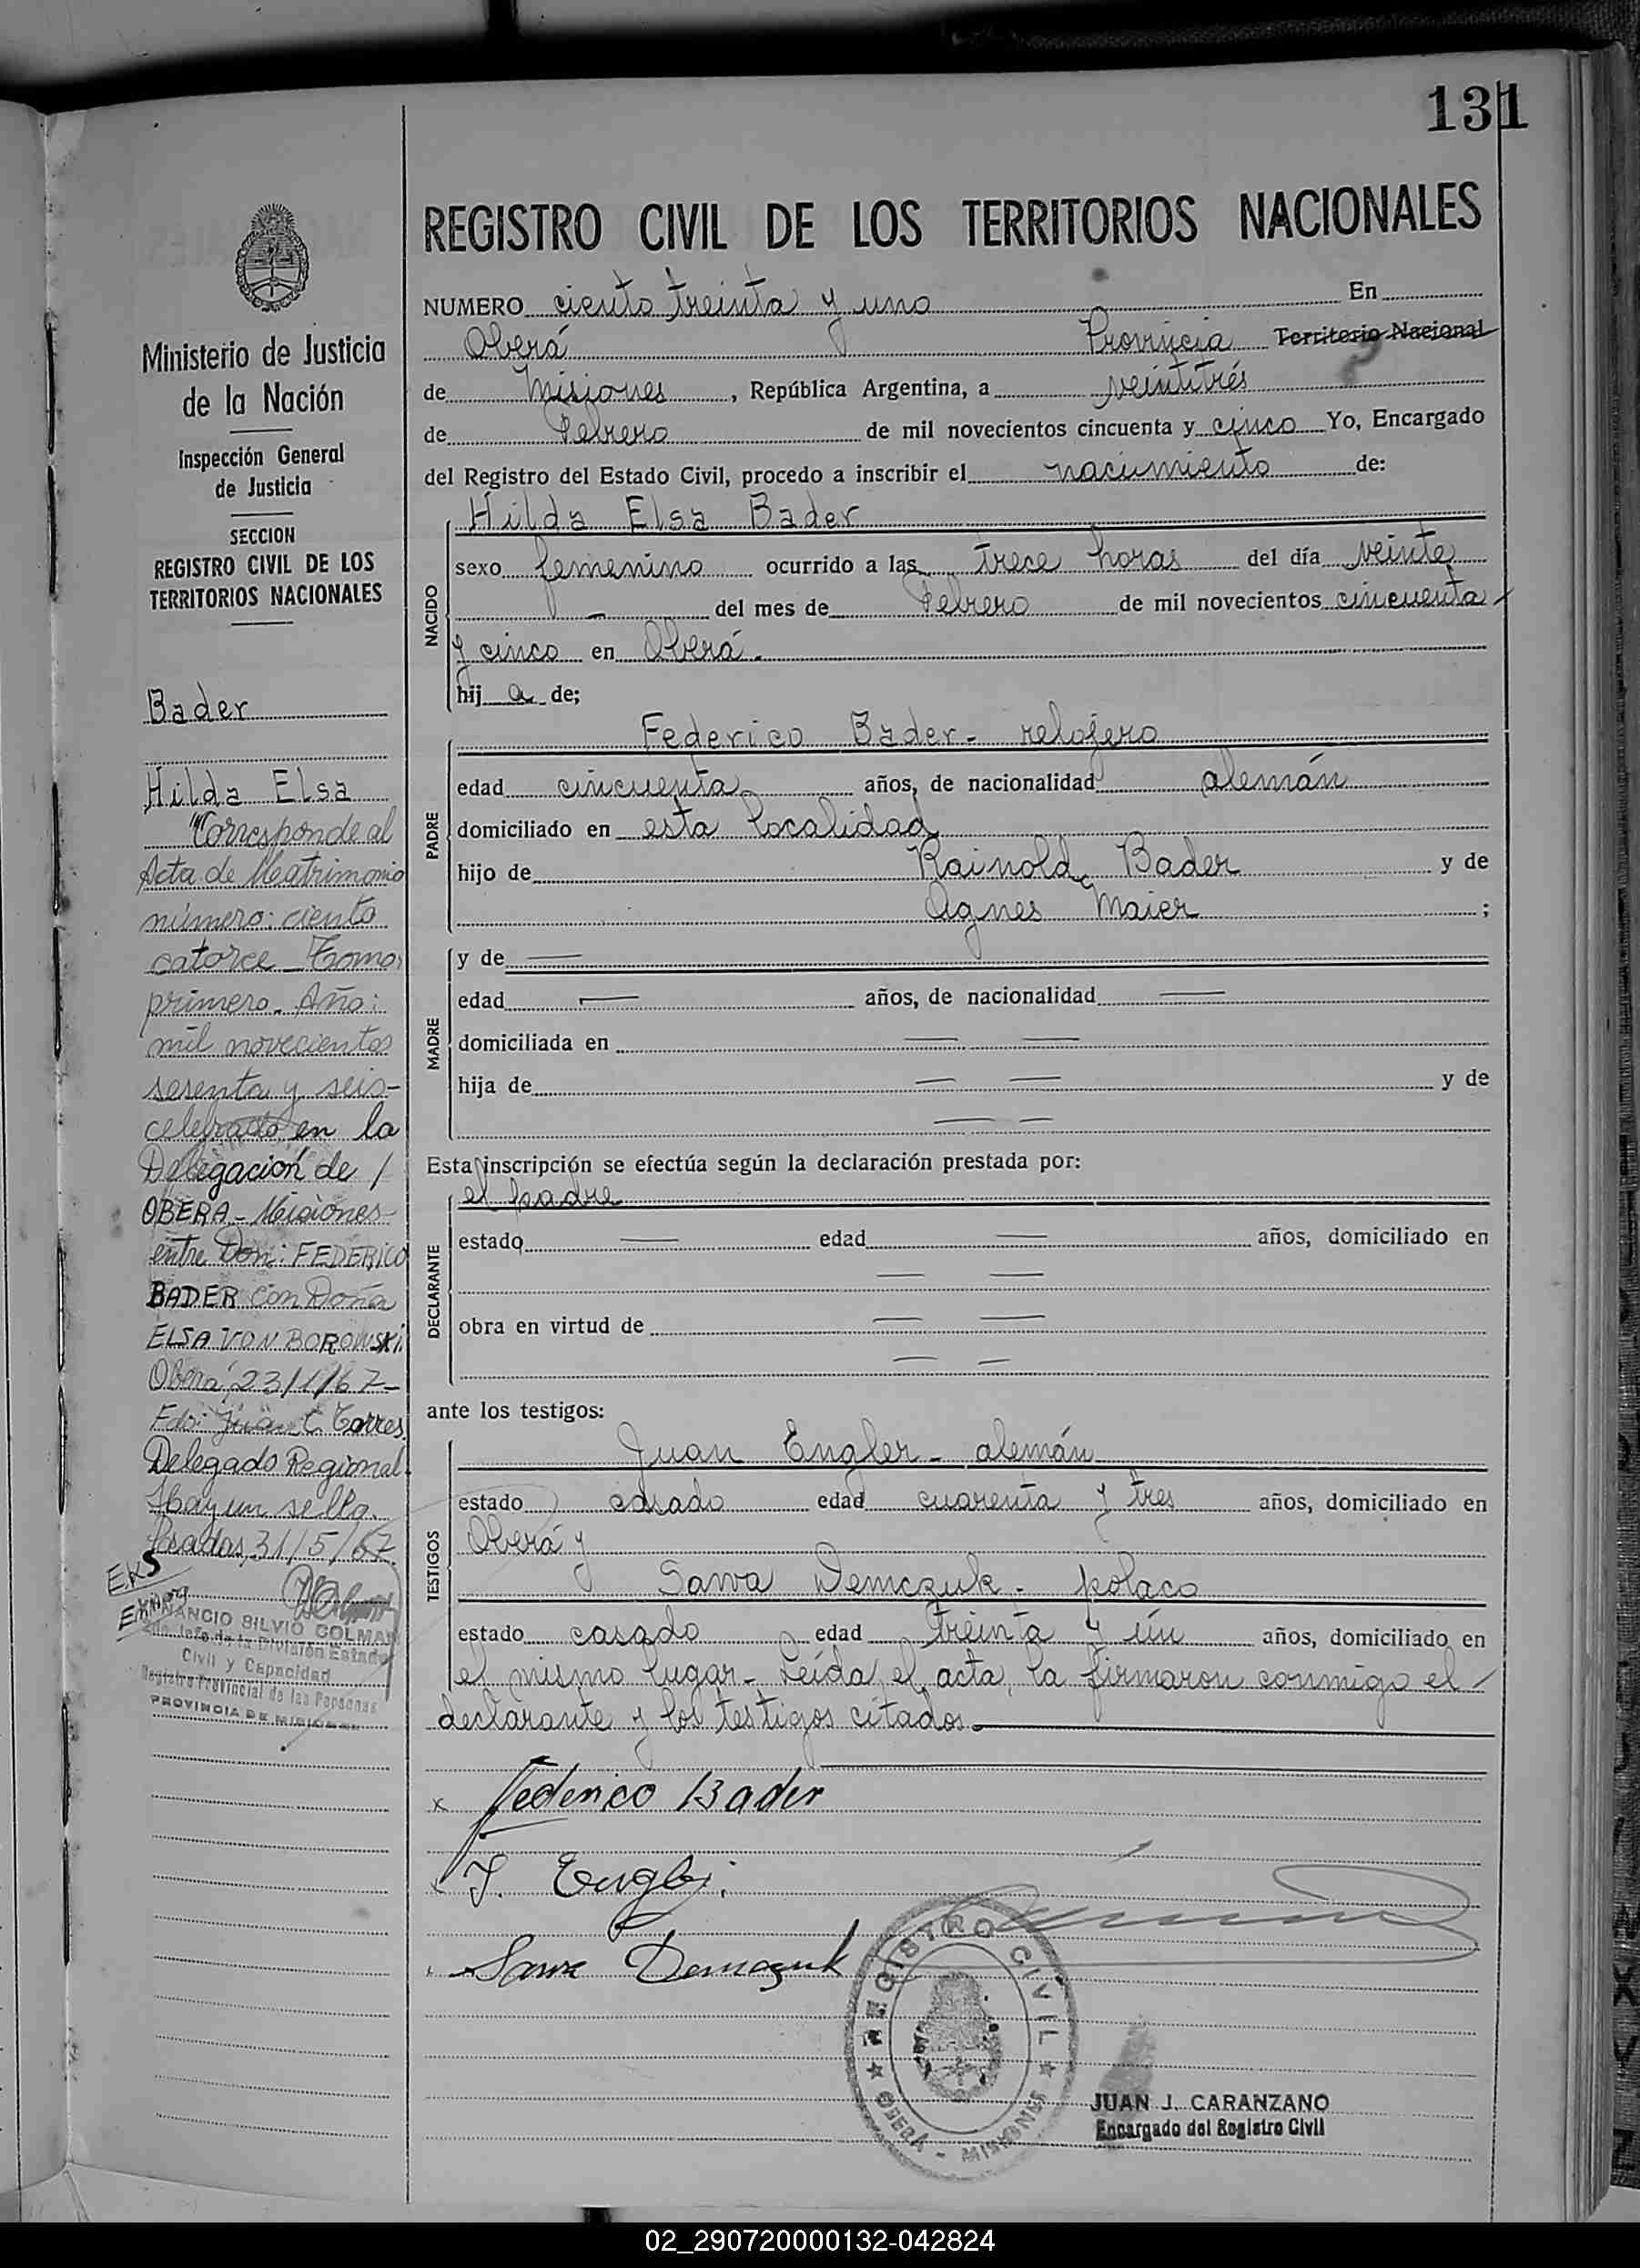 131
REGISTRO CIVIL DE LOS TERRITORIOS NACIONALES
NUMERO ciento treinta y uno En
Oberá Provincia Territorio Nacional
de Misiones, República Argentina, a veintitrés
de Febrero de mil novecientos cincuenta y cinco Yo, Encargado
del Registro del Estado Civil, procedo a inscribir el nacimiento de:
NACIDO
Hilda Elsa Bader
sexo femenino ocurrido a las trece horas del día veinte
— del mes de Febrero de mil novecientos cincuenta
y cinco en Oberá.
hij a de;
PADRE
Federico Bader - relojero
edad cincuenta años, de nacionalidad alemán
domiciliado en esta localidad
hijo de Rainold Bader y de
Agnes Maier ;
MADRE
y de —
edad — años, de nacionalidad —
domiciliada en — —
hija de — — y de
— —
Esta inscripción se efectúa según la declaración prestada por:
DECLARANTE
el padre
estado — edad — años, domiciliado en
— —
obra en virtud de — —
— —
ante los testigos:
TESTIGOS
Juan Engler - alemán
estado casado edad cuarenta y tres años, domiciliado en
Oberá y
Sawa Demczuk - polaco
estado casado edad treinta y un años, domiciliado en
el mismo lugar - Leída el acta, la firmaron conmigo el
declarante y los testigos citados.
x Federico Bader
x J. Engler
Sawa Demczuk
REGISTRO CIVIL
OBERA - MISIONES
JUAN J. CARANZANO
Encargado del Registro Civil
Ministerio de Justicia
de la Nación
Inspección General
de Justicia
SECCION
REGISTRO CIVIL DE LOS
TERRITORIOS NACIONALES
Bader
Hilda Elsa
"Corresponde al
Acta de Matrimonio
número: ciento
catorce - Tomo
primero. Año:
mil novecientos
sesenta y seis-
celebrado en la
Delegación de /
OBERA - Misiones-
entre Don: FEDERICO
BADER con Doña
ELSA VON BOROWSKI.
Oberá, 23/1/67-
Fdo: Juan C. Torres
Delegado Regional.
Hay un sello.
Posadas, 31/5/67.
EKS
VENANCIO SILVIO COLMAN
2do. Jefe de la División Estado
Civil y Capacidad
Registro Provincial de las Personas
PROVINCIA DE MISIONES
02_290720000132-042824